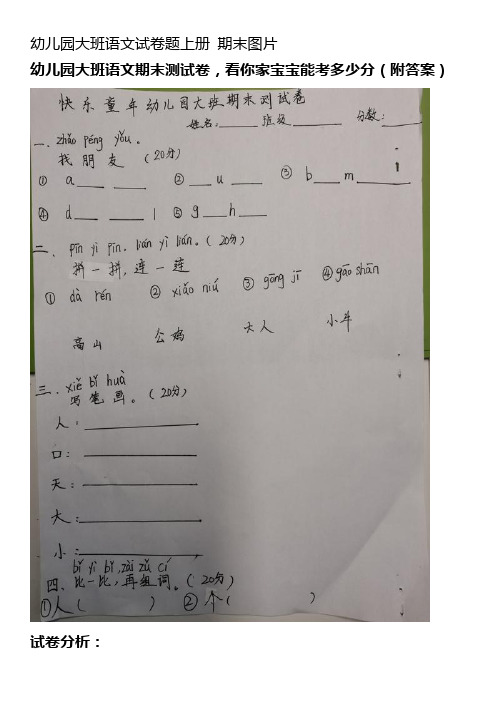 幼儿园大班语文试卷题上册 期末图片
幼儿园大班语文期末测试卷，看你家宝宝能考多少分（附答案）
快乐童年幼儿园大班期末测试卷
姓名：______ 班级________ 分数：______
一、zhǎo péng yǒu。
找朋友（20分）
① a____ ____ ② ___u____ ③ b____m________
④ d____ ______l ⑤ g____h____
二、pīn yi pīn，lián yi lián。（20分）
拼一拼，连一连
① dà rén ② xiǎo niú ③ gōng jī ④ gāo shān
高山 公鸡 大人 小牛
三、xiě bǐ huà
写笔画。（20分）
人：____________
口：____________
天：____________
大：____________
小：____________
bǐ yi bǐ，zài zǔ cí
四、比一比，再组词。（20分）
①人（ ） ②个（ ）
试卷分析：